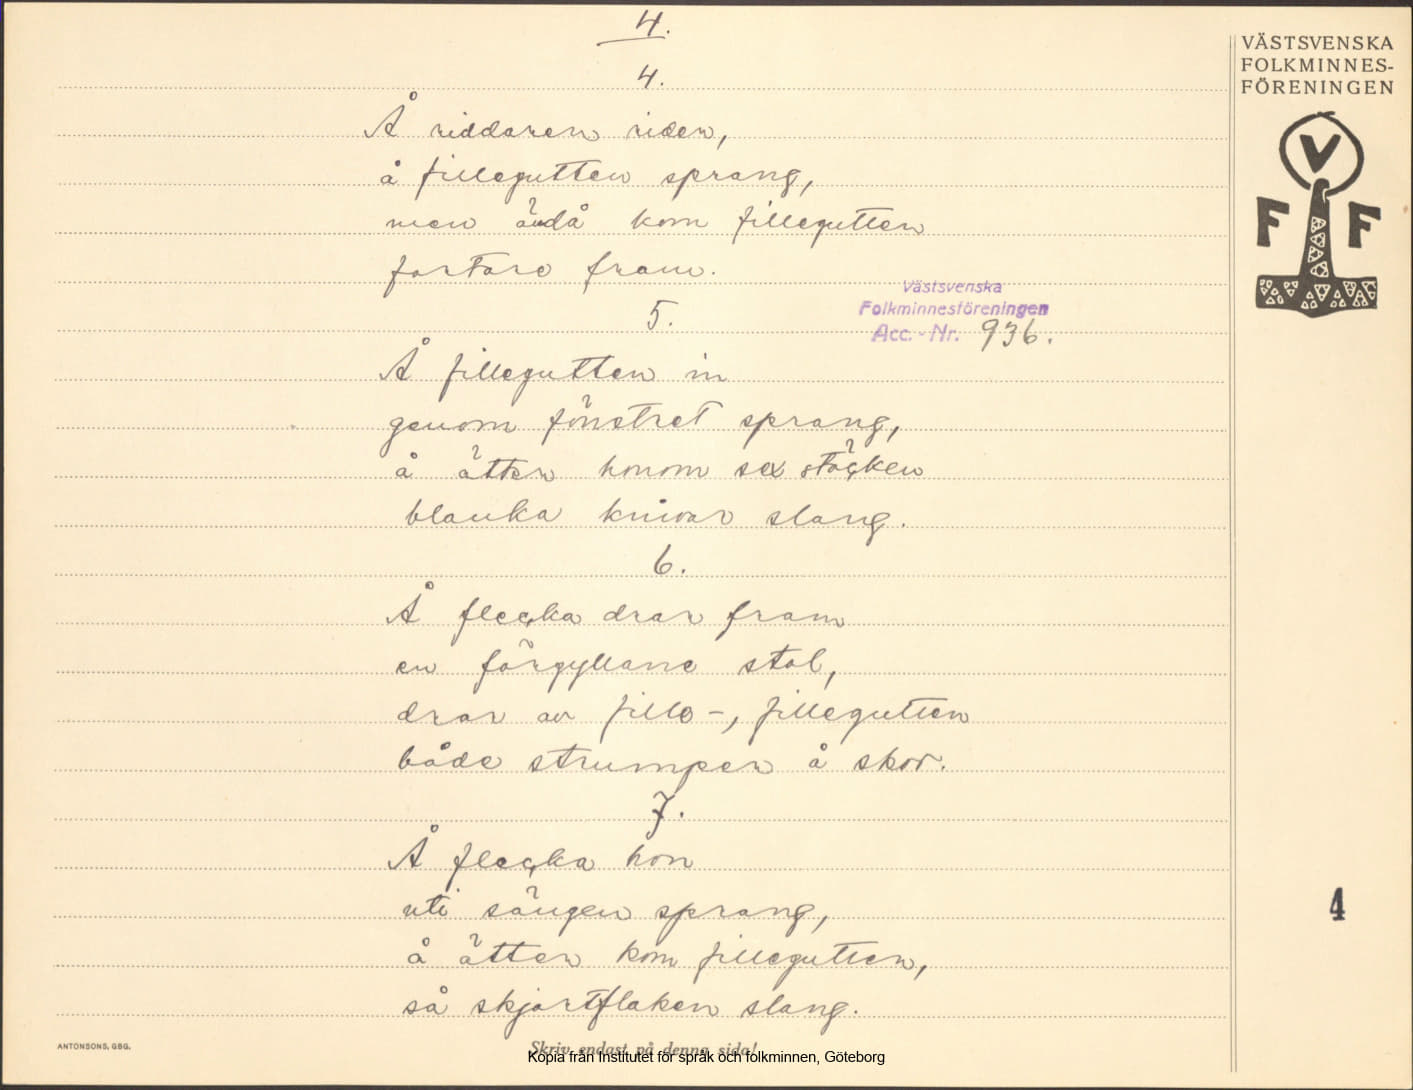 4.
VÄSTSVENSKA
FOLKMINNES-
FÖRENINGEN
V
F F
4.
Å riddaren rider,
å fillegutten sprang,
men ändå kom fillegutten
fortare fram.
Västsvenska
Folkminnesföreningen
Acc.-Nr. 936.
5.
Å fillegutten in
genom fönstret sprang,
å ätter honom sex stäçken
blanka knivar slang.
6.
Å fleçka drar fram
en förgyllane stol,
drar av fille-, fillegutten
både strumper å skor.
7.
Å fleçka hon
uti sängen sprang,
å ätter kom fillegutten,
så skjortflaken slang.
4
ANTONSONS, GBG.
Skriv endast på denna sida!
Kopia från Institutet för språk och folkminnen, Göteborg